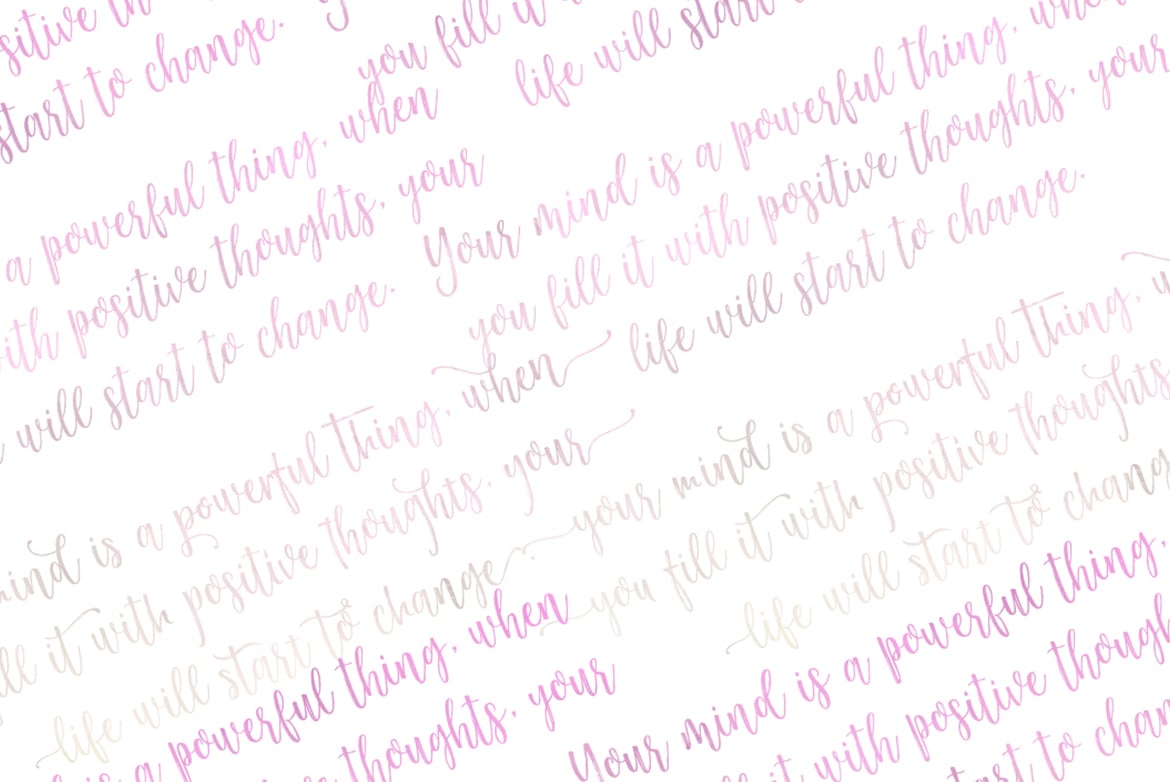 start to change.
you fill it
life will start
a powerful thing, when
with positive thoughts, your
will start to change.
Your mind is a powerful thing, when
you fill it with positive thoughts, your
life will start to change.
mind is a powerful thing, when
it with positive thoughts, your
life will start to change.
your mind is a powerful thing,
you fill it with positive thoughts
life will start to chang
is a powerful thing, when
thoughts, your
Your mind is a powerful thing,
it with positive though
start to chan